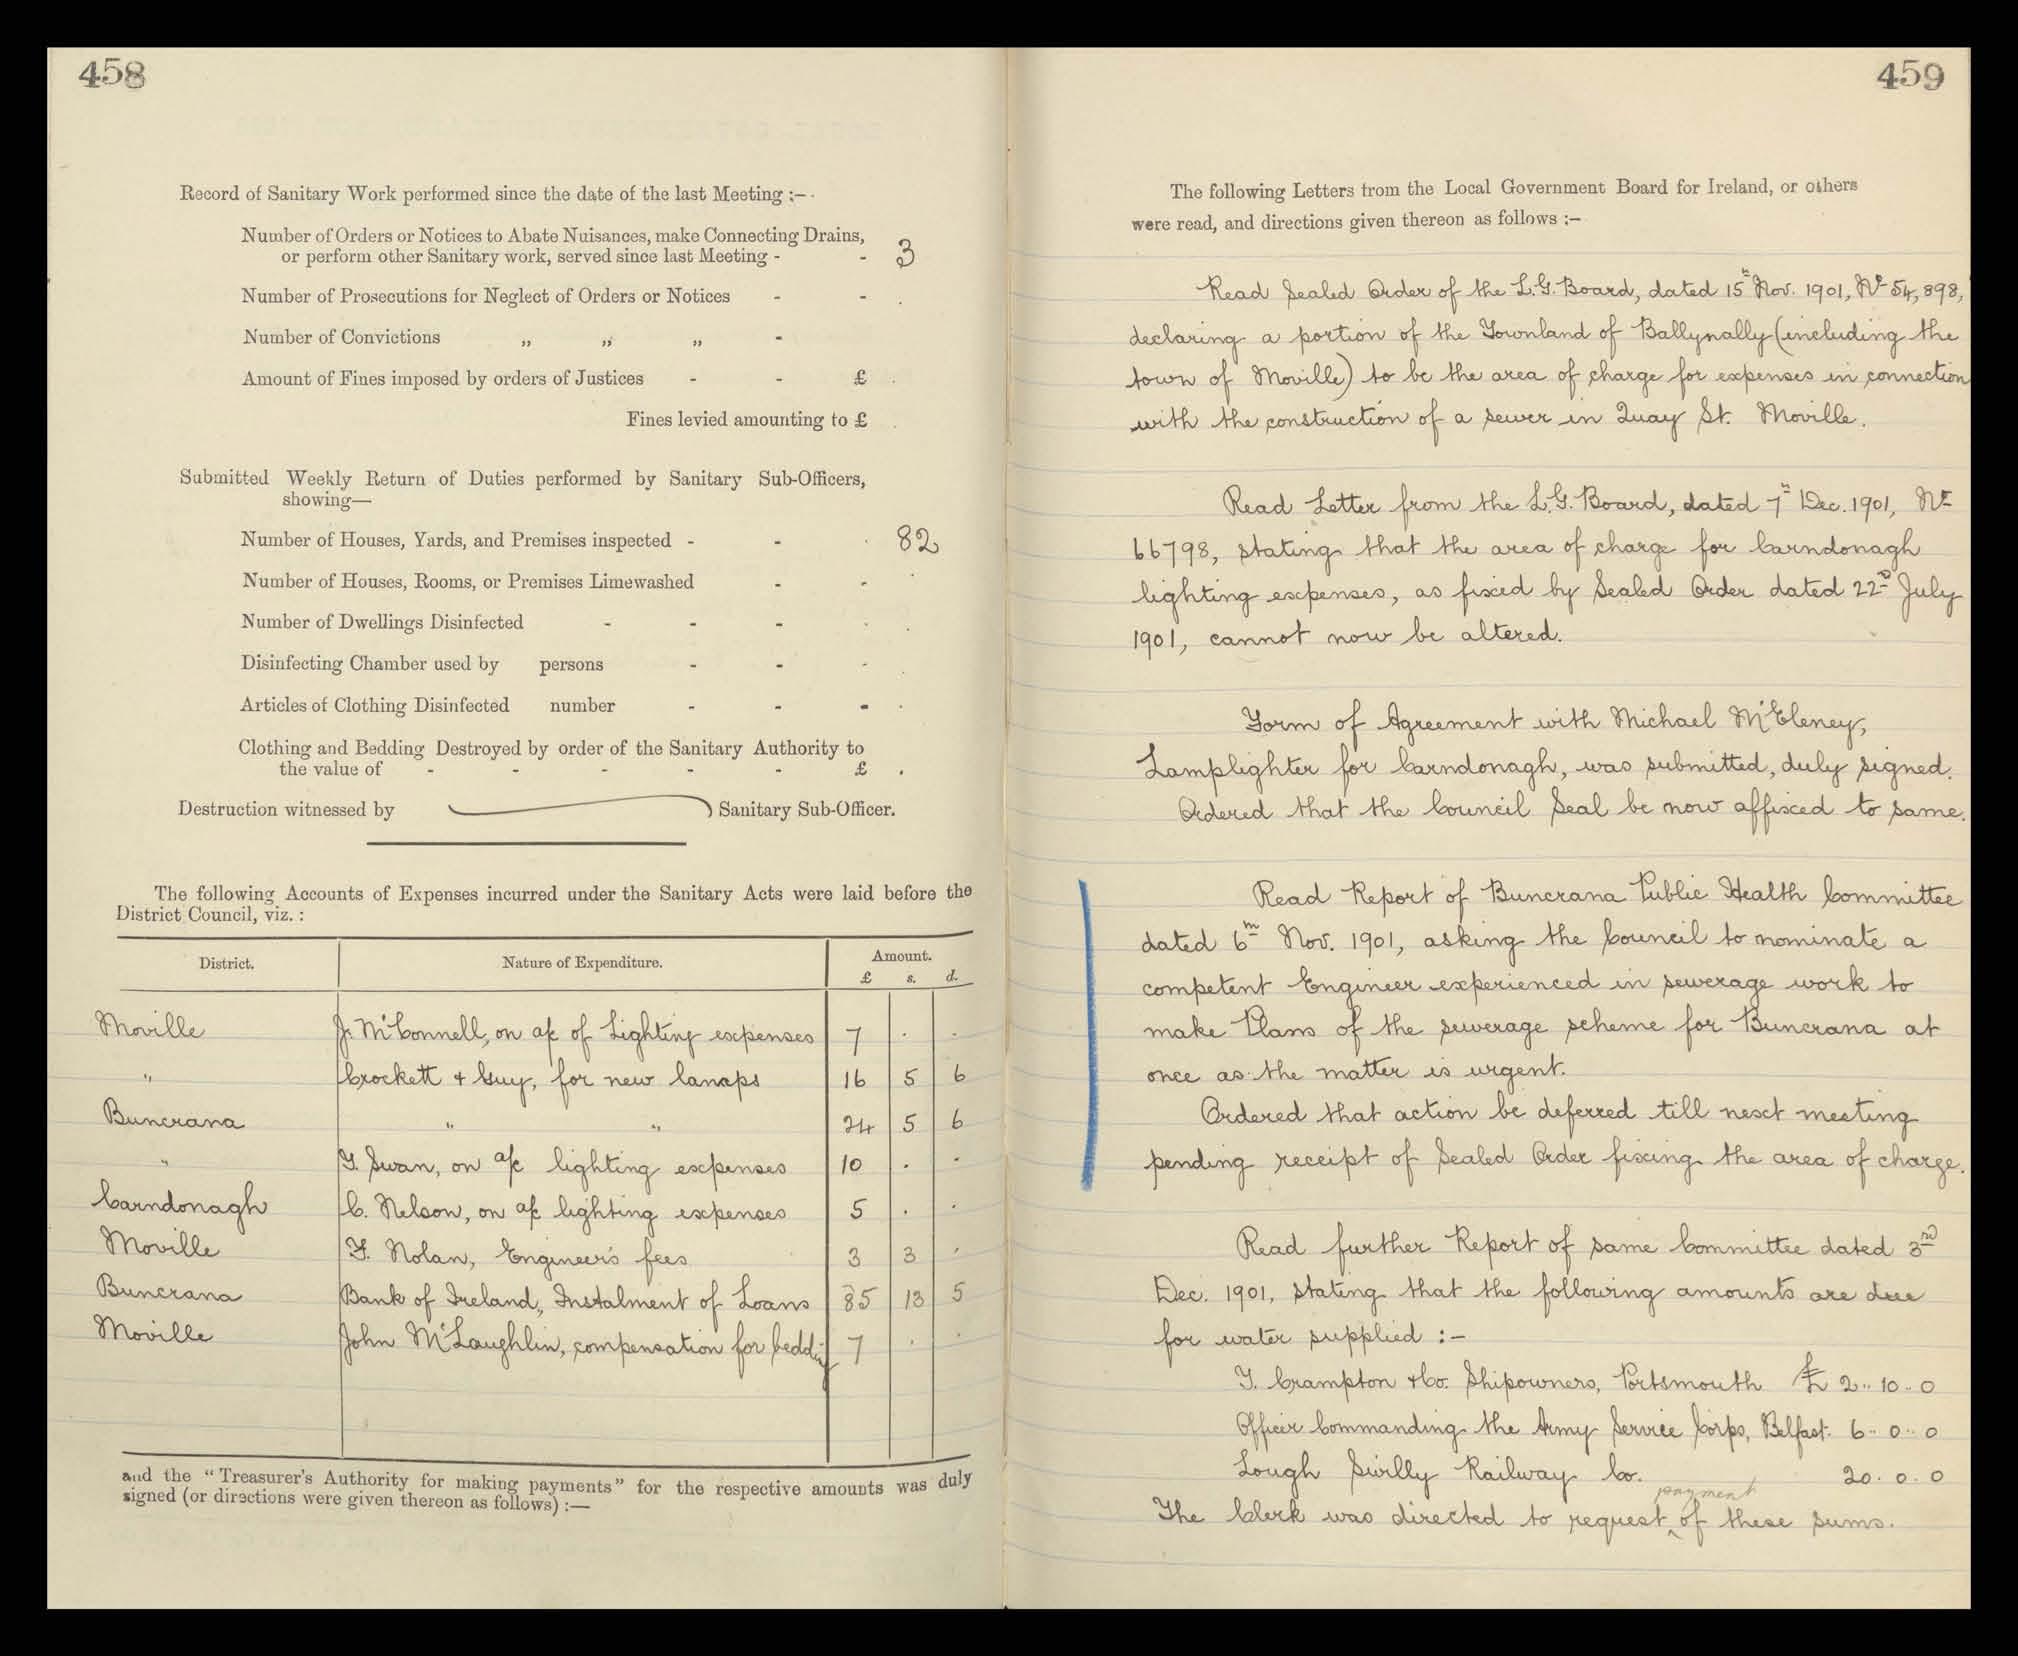 458
Record of Sanitary Work performed since the date of the last Meeting :—
Number of Orders or Notices to Abate Nuisances, make Connecting Drains,
or perform other Sanitary work, served since last Meeting - - 3
Number of Prosecutions for Neglect of Orders or Notices - - .
Number of Convictions „ „ „ -
Amount of Fines imposed by orders of Justices - - £ .
Fines levied amounting to £ .
Submitted Weekly Return of Duties performed by Sanitary Sub-Officers,
showing—
Number of Houses, Yards, and Premises inspected - - . 82
Number of Houses, Rooms, or Premises Limewashed - - .
Number of Dwellings Disinfected - - - . .
Disinfecting Chamber used by persons - - - .
Articles of Clothing Disinfected number - - - .
Clothing and Bedding Destroyed by order of the Sanitary Authority to
the value of - - - - - £ .
Destruction witnessed by Sanitary Sub-Officer.
The following Accounts of Expenses incurred under the Sanitary Acts were laid before the
District Council, viz. :
District. Nature of Expenditure. Amount.
£ s. d.
Moville J. McConnell, on a/c of Lighting expenses 7 . .
" Crockett & Guy, for new lamps 16 5 6
Buncrana " " 24 5 6
" T. Swan, on a/c lighting expenses 10 . .
Carndonagh C. Nelson, on a/c lighting expenses 5 . .
Moville F. Nolan, Engineer's fees 3 3 .
Buncrana Bank of Ireland, Instalment of Loans 85 13 5
Moville John McLaughlin, compensation for bedding 7 . .
and the "Treasurer's Authority for making payments" for the respective amounts was duly
signed (or directions were given thereon as follows) :—
459
The following Letters from the Local Government Board for Ireland, or others
were read, and directions given thereon as follows :—
Read Sealed Order of the L.G. Board, dated 15th Nov. 1901, No 54,898,
declaring a portion of the Townland of Ballynally (including the
town of Moville) to be the area of charge for expenses in connection
with the construction of a sewer in Quay St. Moville.
Read Letter from the L.G. Board, dated 7th Dec. 1901, No
66798, stating that the area of charge for Carndonagh
lighting expenses, as fixed by Sealed Order dated 22nd July
1901, cannot now be altered.
Form of Agreement with Michael McEleney,
Lamplighter for Carndonagh, was submitted, duly signed.
Ordered that the Council Seal be now affixed to same.
Read Report of Buncrana Public Health Committee
dated 6th Nov. 1901, asking the Council to nominate a
competent Engineer experienced in sewerage work to
make Plans of the sewerage scheme for Buncrana at
once as the matter is urgent.
Ordered that action be deferred till next meeting
pending receipt of Sealed Order fixing the area of charge.
Read further Report of same Committee dated 3rd
Dec. 1901, stating that the following amounts are due
for water supplied :—
T. Crampton & Co. Shipowners, Portsmouth £ 2 .. 10 .. 0
Officer Commanding the Army Service Corps, Belfast. 6 .. 0 .. 0
Lough Swilly Railway Co. 20 . 0 . 0
payment
The Clerk was directed to request ^ of these sums.